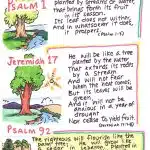 PSALM 1
planted by streams of water,
they brings forth its fruit
in its season,
Its leaf does not wither,
And in whatsoever it does,
it prospers.
(Psalm 1:3)
Jeremiah 17
He will be like a tree
planted by the water
That extends its roots
by a stream
And will not fear
when the heat comes;
But its leaves will be
green,
And it will not be
anxious in a year of
drought
Nor cease to yield fruit.
PSALM 92
The righteous will flourish like the
palm tree: He will grow like
in Lebanon. Planted in